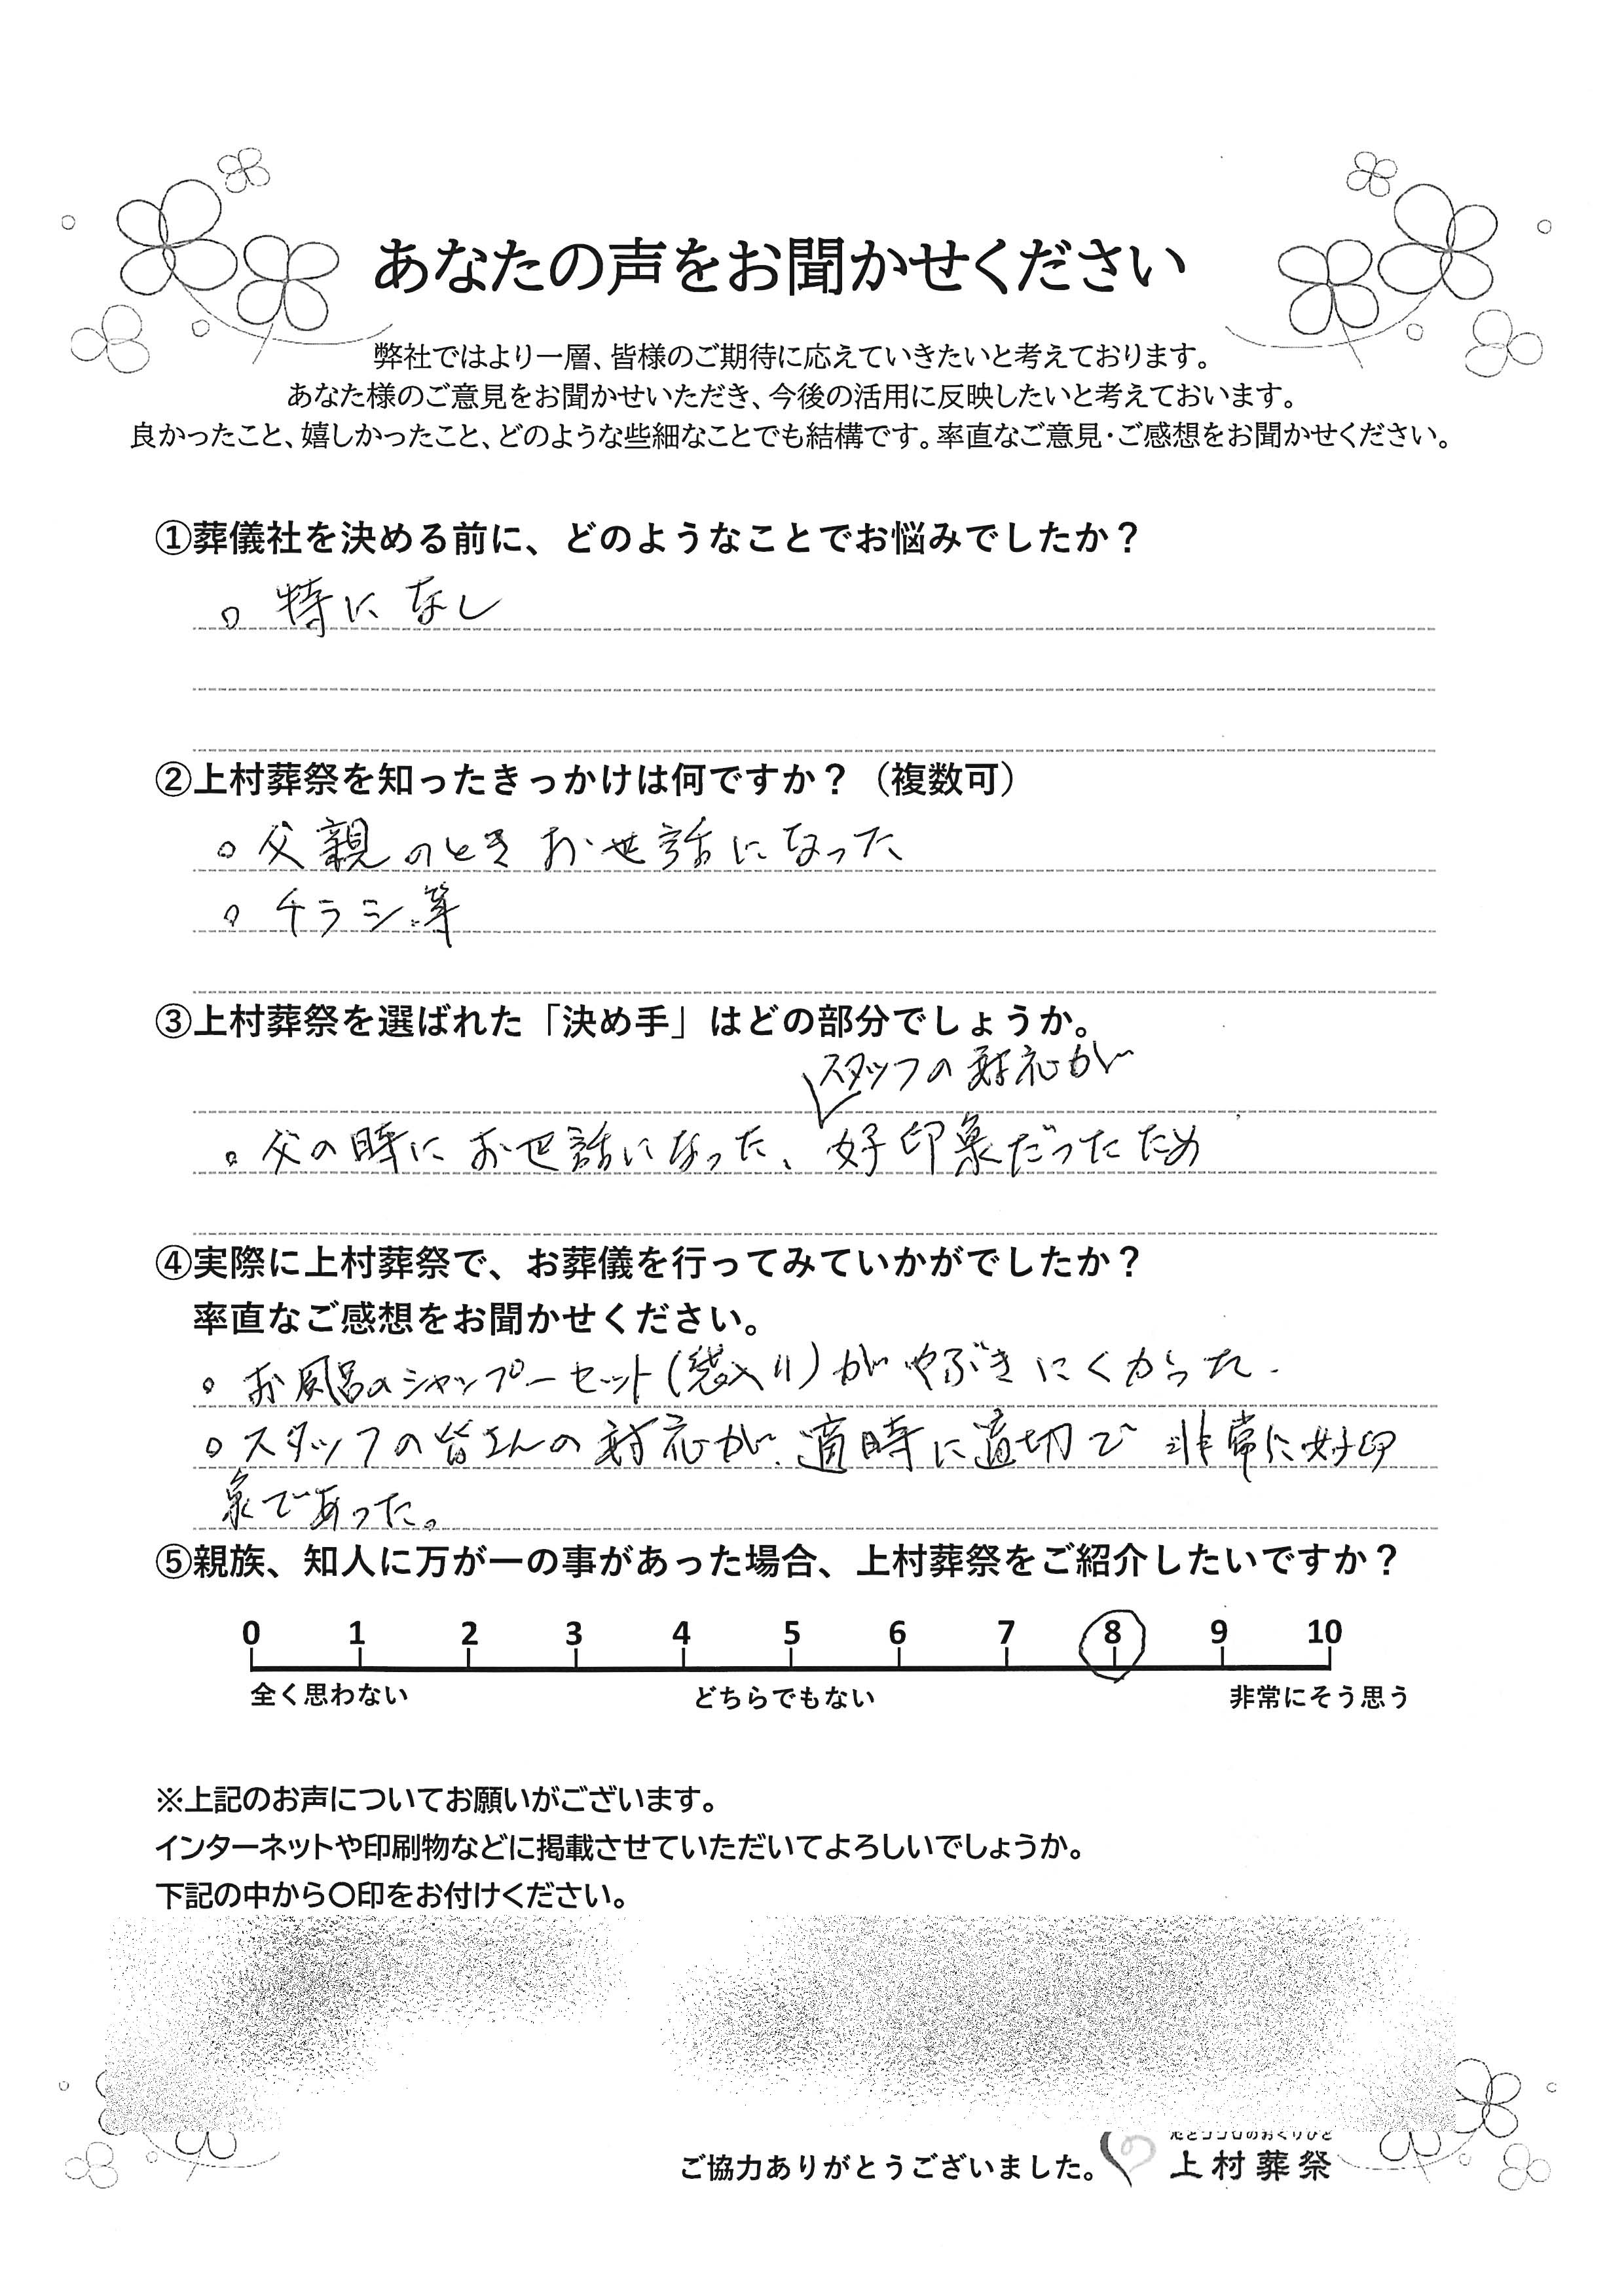 あなたの声をお聞かせください
弊社ではより一層、皆様のご期待に応えていきたいと考えております。
あなた様のご意見をお聞かせいただき、今後の活用に反映したいと考えておいます。
良かったこと、嬉しかったこと、どのような些細なことでも結構です。率直なご意見・ご感想をお聞かせください。
①葬儀社を決める前に、どのようなことでお悩みでしたか？
。特になし
②上村葬祭を知ったきっかけは何ですか？（複数可）
。父親のときお世話になった
。チラシ等
③上村葬祭を選ばれた「決め手」はどの部分でしょうか。
スタッフの対応が
。父の時にお世話になった、好印象だったため
④実際に上村葬祭で、お葬儀を行ってみていかがでしたか？
率直なご感想をお聞かせください。
。お風呂のシャンプーセット(袋入り)がやぶきにくかった.
。スタッフの皆さんの対応が、適時に適切で非常に好印
象であった。
⑤親族、知人に万が一の事があった場合、上村葬祭をご紹介したいですか？
0 1 2 3 4 5 6 7 8 9 10
全く思わない どちらでもない 非常にそう思う
※上記のお声についてお願いがございます。
インターネットや印刷物などに掲載させていただいてよろしいでしょうか。
下記の中から〇印をお付けください。
花とココロのおくりびと
ご協力ありがとうございました。 上村葬祭